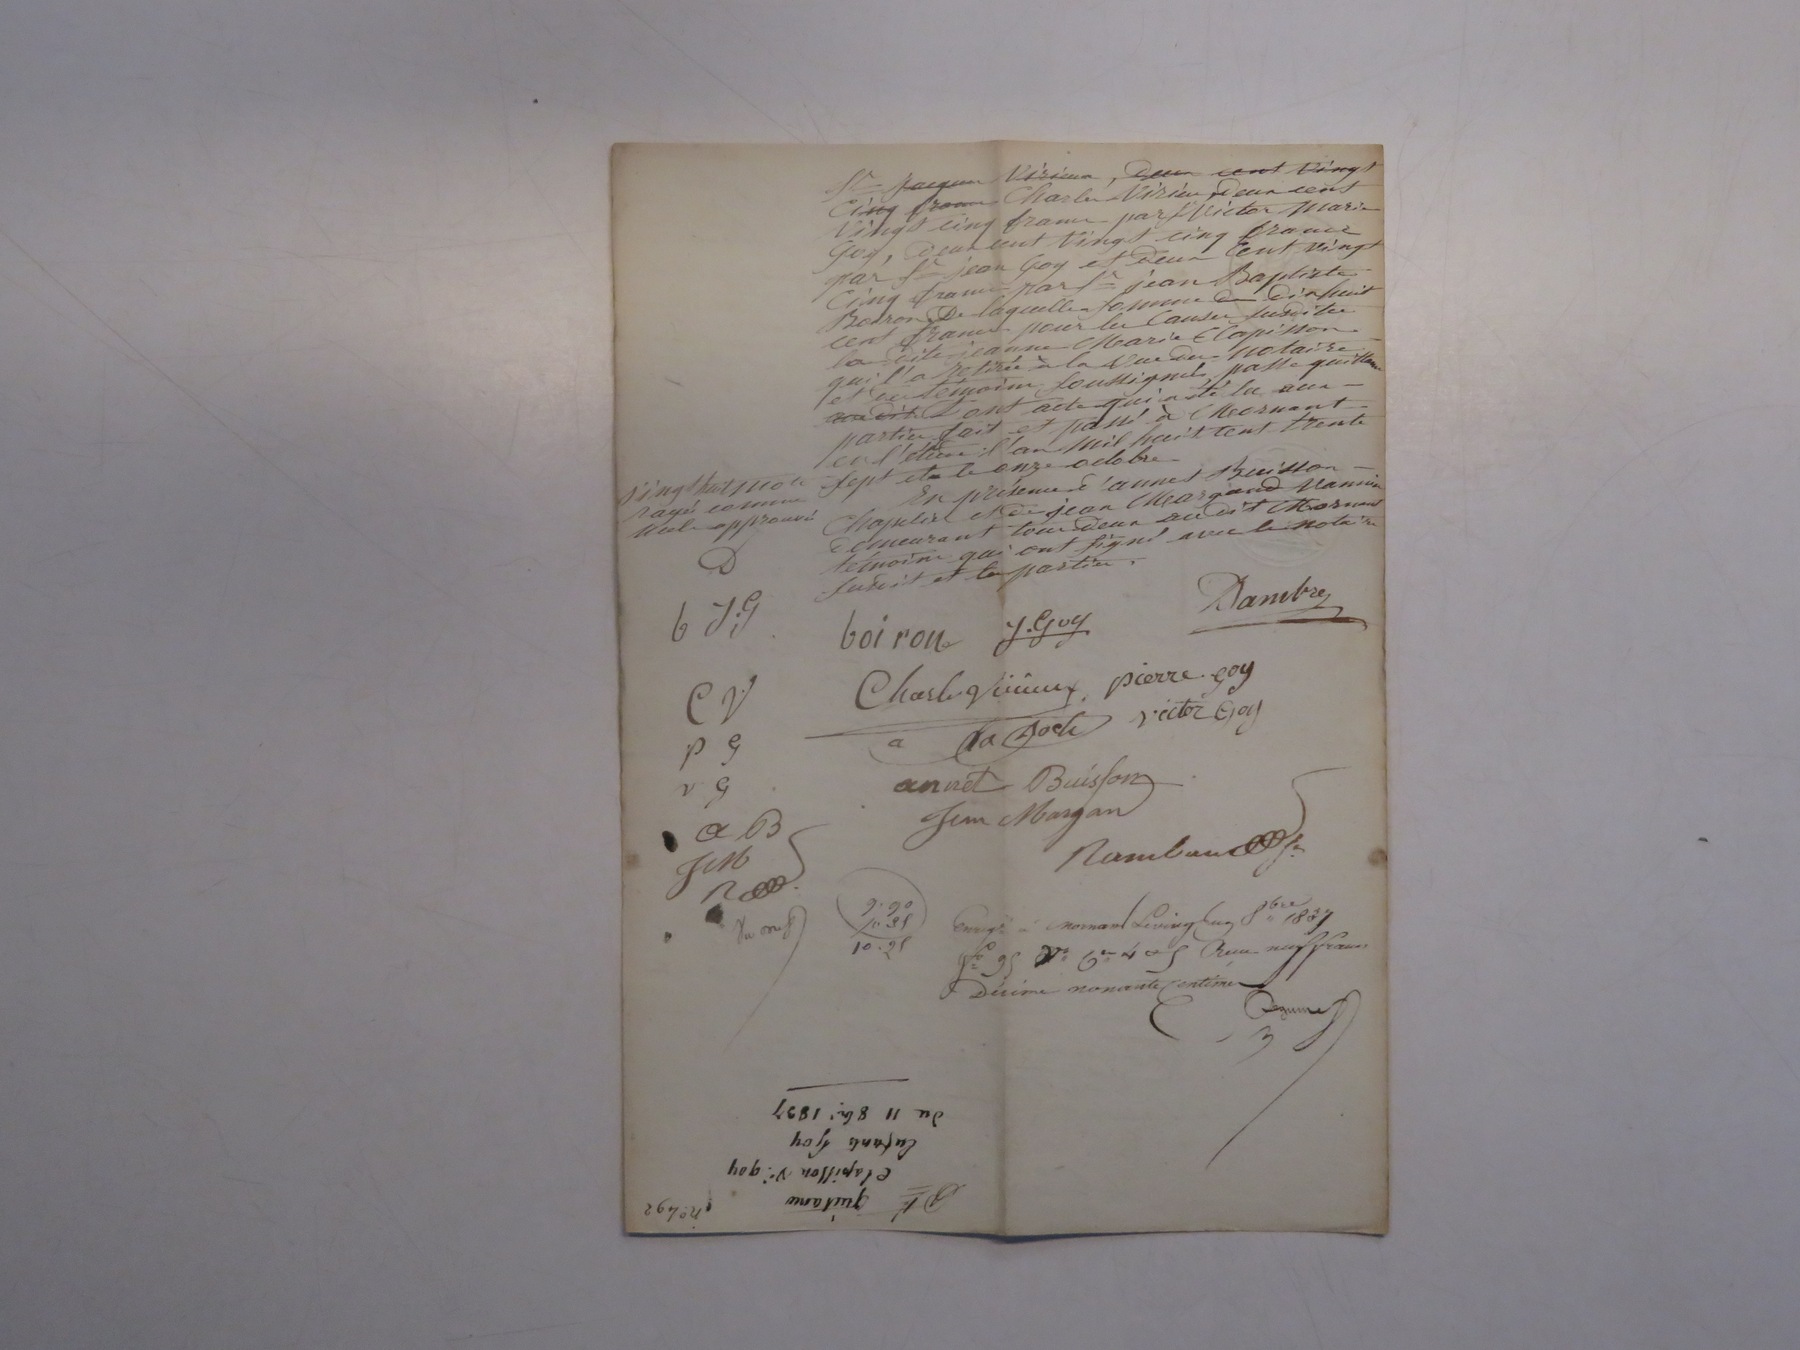 Sr Jacques Virieux, deux cent vingt
Cinq francs Charles Virieu, deux cent
Vingt cinq francs par Sr Victor Marie
Goy, deux cent vingt cinq francs
par Sr jean Goy et deux Cent vingt
Cinq francs par Sr jean Baptiste
Boiron, De laquelle somme de dixhuit
cent francs pour les Causes susdites
la dite jeanne Marie Clapisson
qui l'a retirée à la vue du notaire
et des témoins soussignés, passe quittance
Dont acte qui a été lu aux
parties fait et passé à Mornant
en l'étude l'an mil huit cent trente
sept et le onze octobre
En présence d'annet Buisson
Chapelier et de jean Margand
demeurant tous deux au dit Mornant
témoins qui ont signé avec le notaire
susdit et les parties.
vingt huit mots
rayés comme
nuls approuvé
D
b J.G
C V
p G
v G
a B
J M
R
Dambre
boiron J. Goy
Charle Virieux pierre goy
victor Goy
a
annet Buisson
Jean Margan
Rambaud
9.90
10.25
Enregé à Mornant le vingt 8bre 1837
fo 95 Vo Cses 4 & 5 Reçu neuf francs
Décime nonante centimes
No 492
Dt
quitance
Clapisson Ve goy
Enfants Goy
du 11 8bre 1837